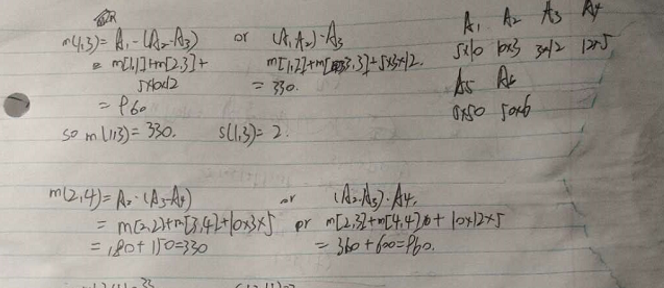 m(1,3) = A1-(A2-A3) or (A1,A2)-A3
= m[1,1]+m[2,3]+ m[1,2]+m[3,3]+5x3x12.
5x10x12 = 330.
= 960
so m(1,3)=330. s(1,3)=2.
A1 A2 A3 A4
5x10 10x3 3x12 12x5
A5 A6
5x50 50x6
m(2,4) = A2-(A3-A4) or (A2-A3)-A4.
= m[2,2]+m[3,4]+10x3x5 or m[2,3]+m[4,4]+10x12x5
= 180+150=330 = 360+600=960.